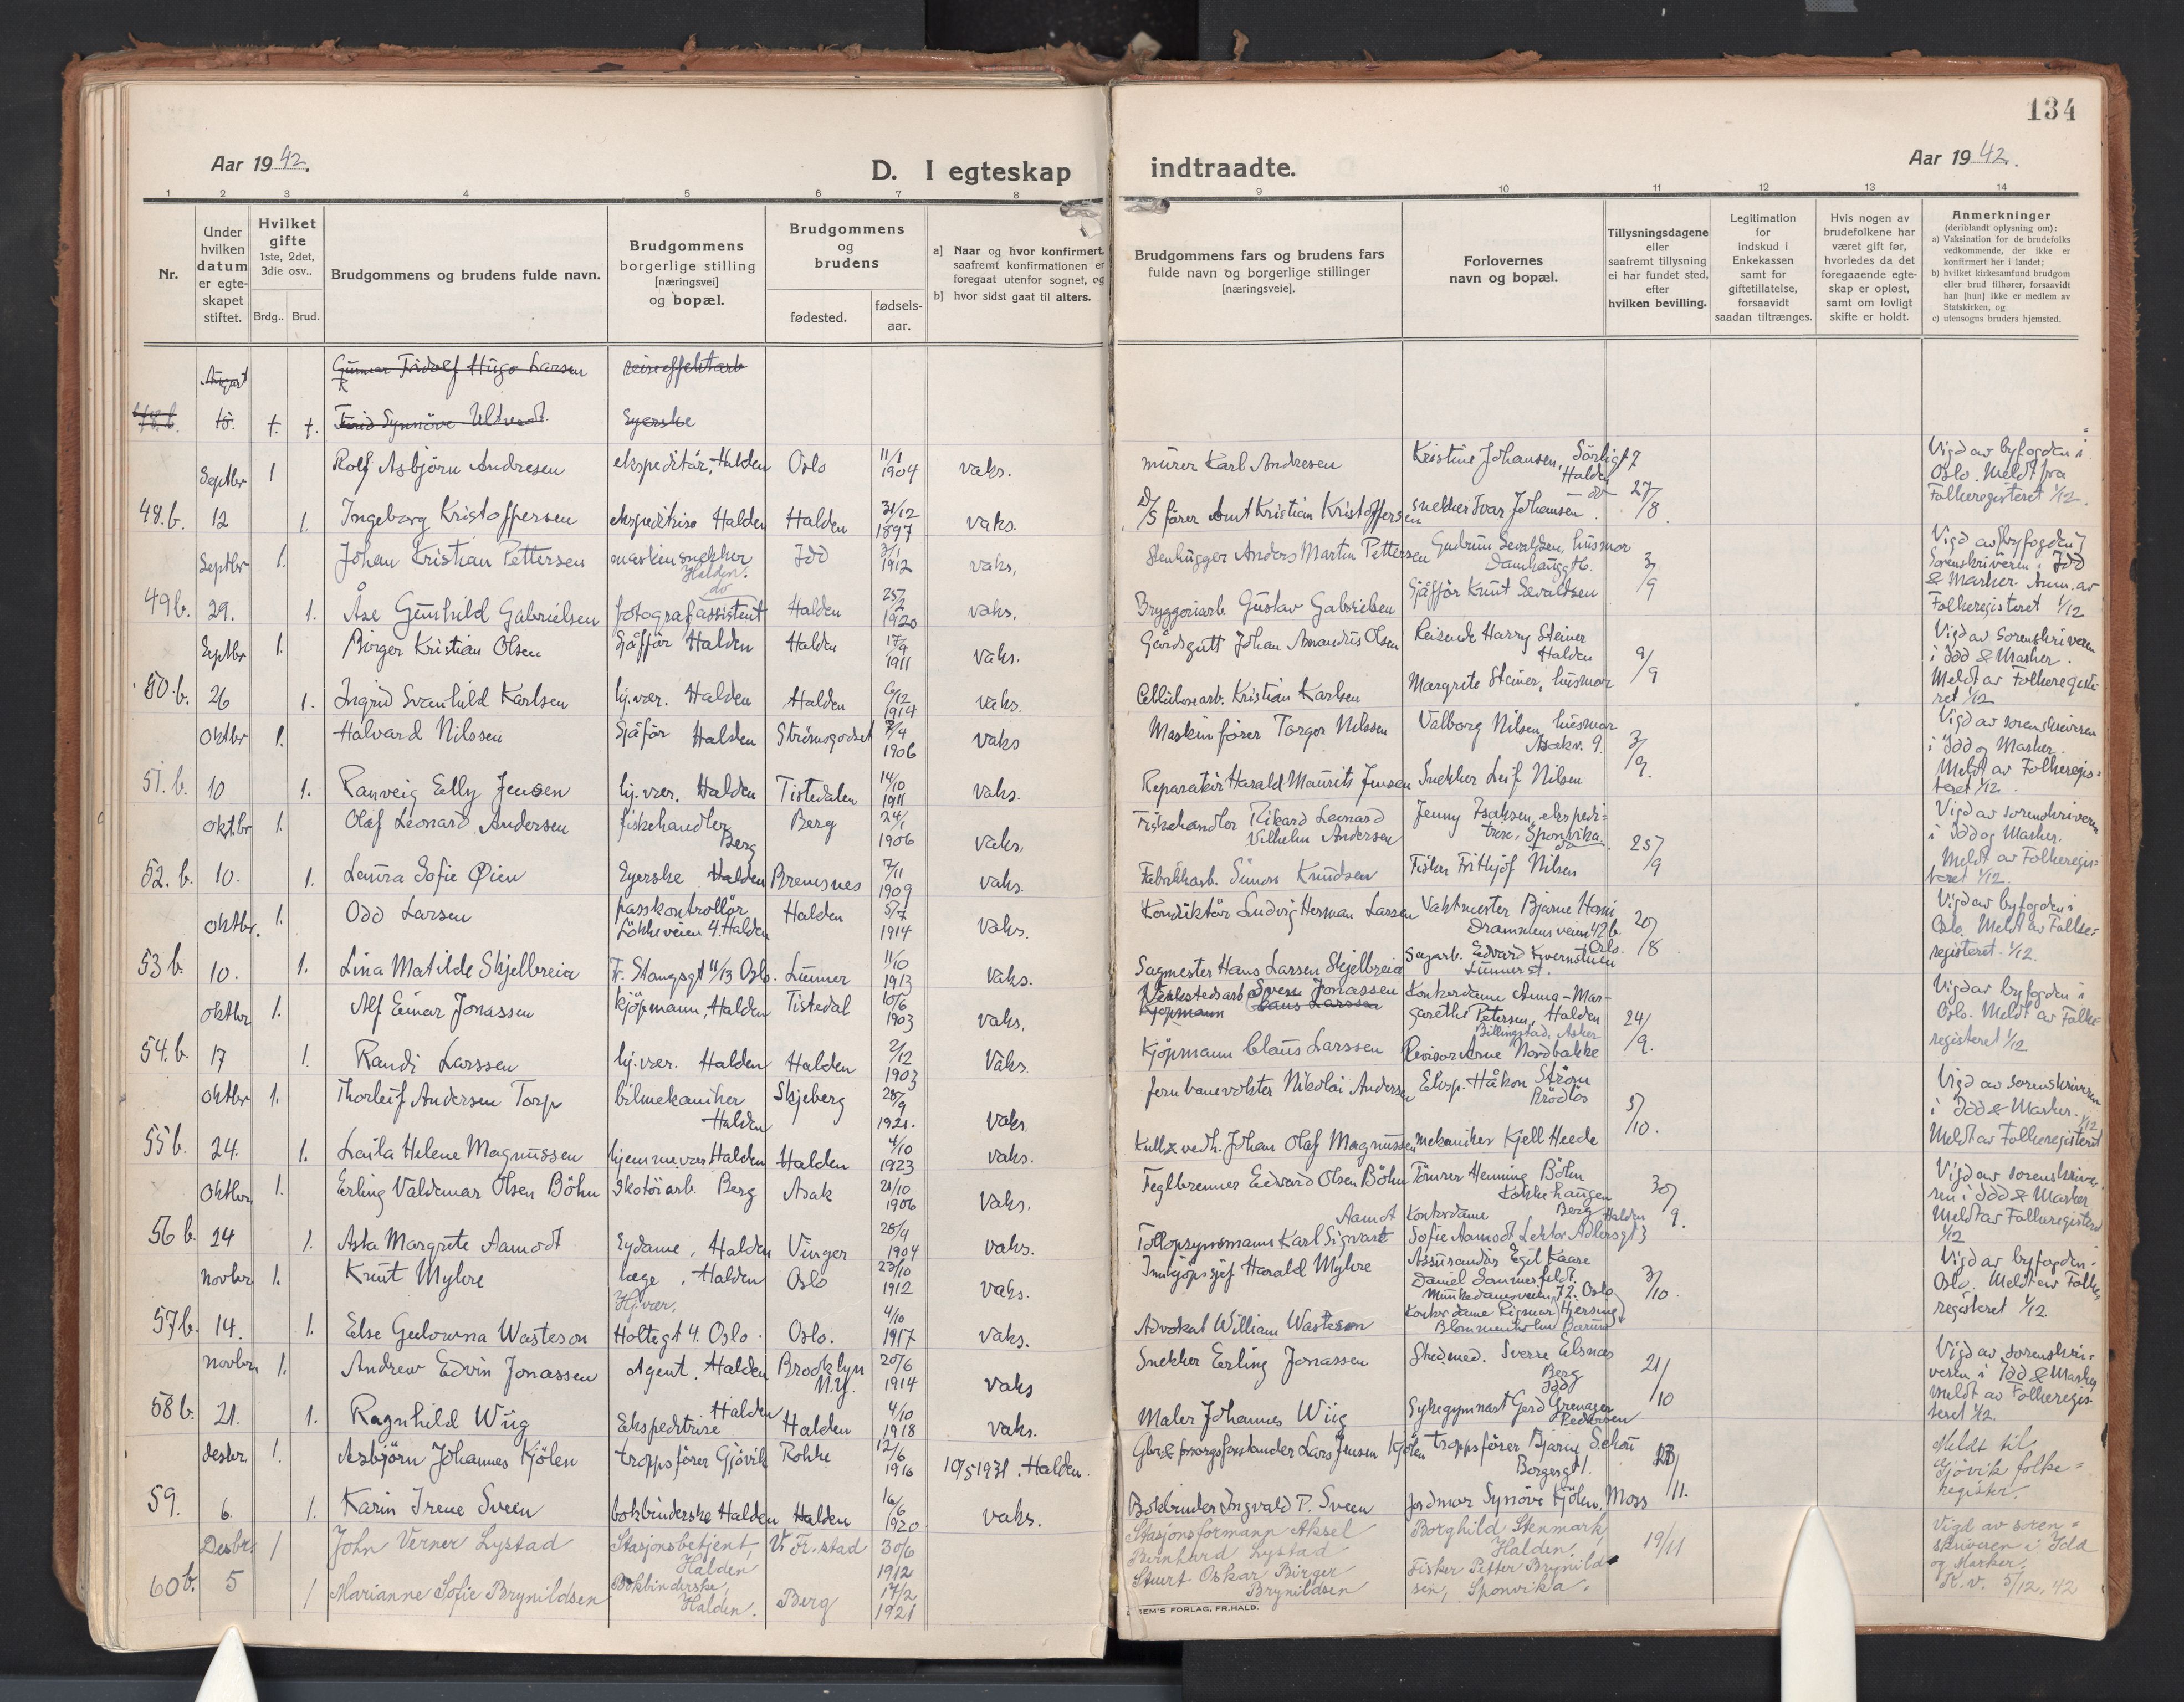 134
Aar 1942.
D. I egteskap indtraadte.
Aar 1942.
1 2 3 4 5 6 7 8 9 10 11 12 13 14
Nr.
Under hvilken datum er egteskapet stiftet.
Hvilket gifte 1ste, 2det, 3die osv..
Brdg.. Brud.
Brudgommens og brudens fulde navn.
Brudgommens borgerlige stilling [næringsvei] og bopæl.
Brudgommens og brudens
fødested.
fødsels-aar.
a] Naar og hvor konfirmert, saafremt konfirmationen er foregaat utenfor sognet, og
b] hvor sidst gaat til alters.
Brudgommens fars og brudens fars fulde navn og borgerlige stillinger [næringsveie].
Forlovernes navn og bopæl.
Tillysningsdagene eller saafremt tillysning ei har fundet sted, efter hvilken bevilling.
Legitimation for indskud i Enkekassen samt for giftetillatelse, forsaavidt saadan tiltrænges.
Hvis nogen av brudefolkene har været gift før, hvorledes da det foregaaende egteskap er opløst, samt om lovligt skifte er holdt.
Anmerkninger (deriblandt oplysning om):
a) Vaksination for de brudefolks vedkommende, der ikke er konfirmert her i landet;
b) hvilket kirkesamfund brudgom eller brud tilhører, forsaavidt han [hun] ikke er medlem av Statskirken, og
c) utensogns bruders hjemsted.
August Gunnar Fridolf Hugo Larsen reiseeffektarb
48.b. Synnöve Syerske
Septbr 1 Rolf Asbjörn Andresen ekspeditör, Halden Oslo 11/1 1904 vaks. murer Karl Andresen Kristine Johansen, Sörligt 7 Halden 27/8 Vigd av byfogden i Oslo. Meldt fra
48.b. 12 1. Ingeborg Kristoffersen ekspeditrise Halden Halden 31/12 1897 vaks. D/S förer Amt Kristian Kristoffersen snekker Ivar Johansen. – do – Folkeregisteret 1/12.
Septbr 1. Johan Kristian Pettersen maskinsnekker Halden. Idd 3/1 1912 vaks. Stenhugger Anders Martin Pettersen Gudrun Sevaldsen, husmor Damhauggt 6. 3/9 Vigd av byfogden Sorenskriveren i Idd
49b. 29. 1. Åse Gunhild Gabrielsen do fotografassistent Halden 25/2 1920 vaks. Bryggeriarb Gustav Gabrielsen Sjåfför Knut Sevaldsen & Marker. Anm. av Folkeregisteret 1/12
Septbr 1. Birger Kristian Olsen Sjåffør Halden Halden 17/9 1911 vaks. Gårdsgutt Johan Amandus Olsen Reisende Harry Steiner Halden 9/9 Vigd av sorenskriveren i Idd & Marker.
50.b. 26 1. Ingrid Svanhild Karlsen hj.vær. Halden Halden 6/12 1914 vaks. Cellulosearb. Kristian Karlsen Margrete Steiner, husmor Meldt av Folkeregisteret 1/12
Oktbr 1. Halvard Nilssen Sjåför Halden Strömsgodset 7/4 1906 vaks Maskinförer Torgor Nilssen Valborg Nilsen, husmor Asakv. 9. 3/9. Vigd av sorenskriveren i Idd og Marker.
51.b. 10 1. Ranveig Eally Jensen hj.vær. Halden Tistedalen 14/10 1911 vaks. Reparatör Harald Maurits Jensen Snekker Leif Nilsen Meldt av Folkeregisteret 1/12.
Oktbr 1. Olaf Leonard Andersen fiskehandler Berg Berg 24/1 1906 vaks. Fiskehandler Rikard Leonard Vilhelm Andersen Jenny Isaksen, ekspeditrise, Sponvika. 25/9 Vigd av sorenskriveren i Idd og Marker.
52.b. 10. 1. Laura Sofie Øien Syerske Halden Bremsnes 7/11 1909 vaks. Fabrikkarb. Simon Knudsen Fisker Frithjof Nilsen do Meldt av Folkeregisteret 1/12.
Oktbr. 1. Odd Larsen passkontrollör Lökkeveien 4. Halden Halden 5/7 1914 vaks. Konduktör Ludvig Herman Larsen Vaktmester Bjarne Drammensveien 42b. Oslo. 20/8 Vigd av byfogden i Oslo. Meldt av Folkeregisteret. 1/12.
53b. 10. 1. Lina Matilde Skjelbreia Fr. Stangsgt 11/13 Oslo. Lunner 11/10 1913 vaks. Sagmester Hans Larsen Skjelbreia Sagarb. Edvard Kvernstuen Lunner st.
Oktbr 1. Alf Einar Jonassen kjöpmann, Halden Tistedal 10/6 1903 vaks. Verkstedsarb Sverre Jonassen Kontordame Anna-Margrethe Petersen, Halden 24/9. Vigd av byfogden i Oslo. Meldt av Folkeregisteret 1/12
54.b. 17 1. Randi Larssen hj.vær. Halden Halden 2/12 1903 Vaks. Kjöpmann Claus Larssen Billingstad, Asker Revisor Arne Nordbakke
Oktbr 1. Thorleif Andersen Torp bilmekaniker Halden Skjeberg 28/9 1921. vaks. Jernbanevokter Nikolai Andersen Eksp. Håkon Ström Brödlös 5/10. Vigd av sorenskriveren i Idd & Marker. 1/12
55b. 24. 1. Laila Helene Magnussen hjemmevær Halden Halden 4/10 1923 vaks. Kull & vedh. Johan Olaf Magnussen mekaniker Kjell Heede Meldt av Folkeregisteret
Oktbr. 1. Erling Valdemar Olsen Böhn Skotöiarb. Berg Asak 21/10 1906 vaks. Teglbrenner Edvard Olsen Böhn Tömrer Henning Böhn Kokkehaugen Berg 30/9. Vigd av sorenskriveren i Idd & Marker
56b. 24 1. Asta Margrete Aamodt Sydame, Halden Vinger 28/9 1904 vaks. Tollopsynsmann Karl Sigvart Aamot Kontordame Sofie Aamodt Lektor Adlersgt 3 Halden Meldt av Folkeregisteret 1/12
Novbr. 1. Knut Myhre læge, Halden Oslo 23/10 1912 vaks. Innkjöpssjef Harald Myhre Assurandör Egil Kaare Daniel Sommerfeldt. Munkedamsveien 72. Oslo 3/10. Vigd av byfogden i Oslo. Meldt av Folkeregisteret 1/12.
57b. 14. 1. Else Gulowna Wasteson Hj.vær. Holtegt 4. Oslo. Oslo. 4/10 1917 vaks. Advokat William Wasteson Kontordame Rigmor Hersing Blommenholm Bærum
Novbr. 1. Andrew Edvin Jonassen Agent, Halden Brooklyn N.Y. 20/6 1914 vaks Snekker Erling Jonassen Stud.med. Sverre Elsnes Berg Idd 21/10 Vigd av sorenskriveren i Idd & Marker
58b. 21. 1. Ragnhild Wiig Ekspeditrise Halden Halden 4/10 1918 vaks. Maler Johannes Wiig Sykegymnast Gerd Grenager Pedersen Meldt av Folkeregisteret 1/12.
Desbr. 1. Asbjörn Johannes Kjölen troppsförer Gjövik Rokke 12/6 1916 10/5 1931. Halden. Lars Jensen Kjölen troppsförer Bjarne Schou Borgergt 1. /11. Meldt til Gjövik folkeregister.
59. 6. 1. Karin Irene Sveen bokbinderske Halden Halden 16/6 1920 vaks. Bokbinder Ingvald P. Sveen Jordmor Synöve Kjölen, Moss
Desbr. 1 John Verner Lystad Stasjonsbetjent, Halden V. Fr.stad 30/6 1912 Stasjonsformann Aksel Bernhard Lystad Borghild Stenmark, Halden. 19/11 Vigd av sorenskriveren i Idd og Marker.
60b. 5 1 Marianne Sofie Brynildsen Bokbinderske, Halden. Berg 17/2 1921 Stuert Oskar Birger Brynildsen Fisker Petter Brynildsen, Sponvika. K.v. 5/12.42
SEM'S FORLAG, FR.HALD.